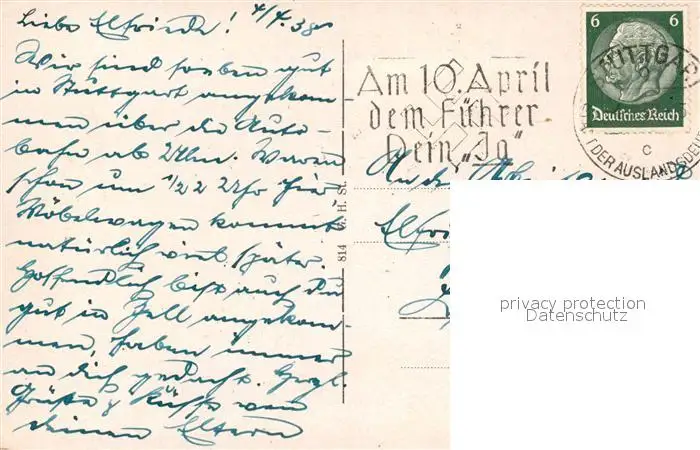 Liebe Elfriede! 4/4.38
Wir sind soeben gut
in Stuttgart angekom-
men über die Auto-
bahn ab Ulm. Waren
schon um 1/2 2 Uhr hier
Möbelwagen kommt
natürlich viel später.
Hoffentlich bist auch Du
gut in Zell angekom-
men, haben immer
an dich gedacht. Herzl.
Grüße & Küsse von
deinen Eltern
814 G. H. St.
Am 10. April
dem Führer
Dein „Ja“
6 6
Deutsches Reich
STUTTGART
STADT DER AUSLANDSDEUTSCHEN
c
An die
Elfrie
privacy protection
Datenschutz